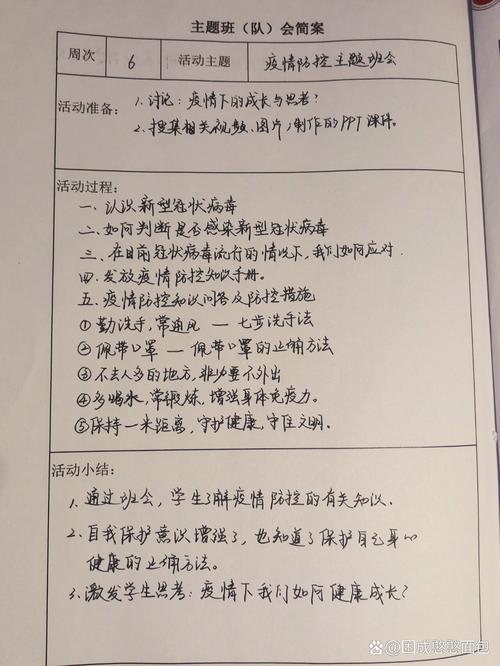 主题班（队）会简案
周次 6 活动主题 疫情防控主题班会
活动准备： 1. 讨论：疫情下的成长与思考？
2. 搜集相关视频、图片，制作的PPT课件。
活动过程：
一、认识新型冠状病毒
二、如何判断是否感染新型冠状病毒
三、在目前冠状病毒流行的情况下，我们如何应对.
四、发放疫情防控知识手册。
五、疫情防控知识问答及防控措施
①勤洗手，常通风 — 七步洗手法
②佩带口罩 — 佩带口罩的正确方法
③不去人多的地方，非必要不外出
④多喝水，常锻炼，增强身体免疫力。
⑤保持一米距离，守护健康，守住文明.
活动小结：
1. 通过班会，学生了解疫情防控的有关知识.
2. 自我保护意识增强了，也知道了保护自己身心
健康的正确方法。
3. 激发学生思考：疫情下我们如何健康成长？
困成憨憨面包